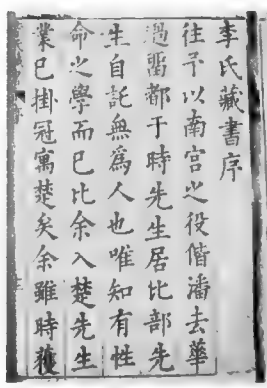 李氏藏書序
往予以南宮之役偕潘去華
過留都于時先生居比部先
生自託無爲人也唯知有性
命之學而已比余入楚先生
業已掛冠寓楚矣余雖時獲